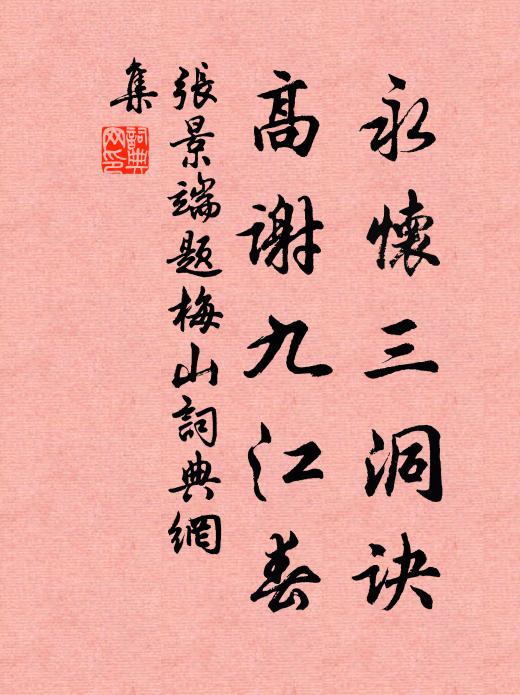 永懷三洞訣
高謝九江春
張景端題梅山詞典網
集
詞典
网印